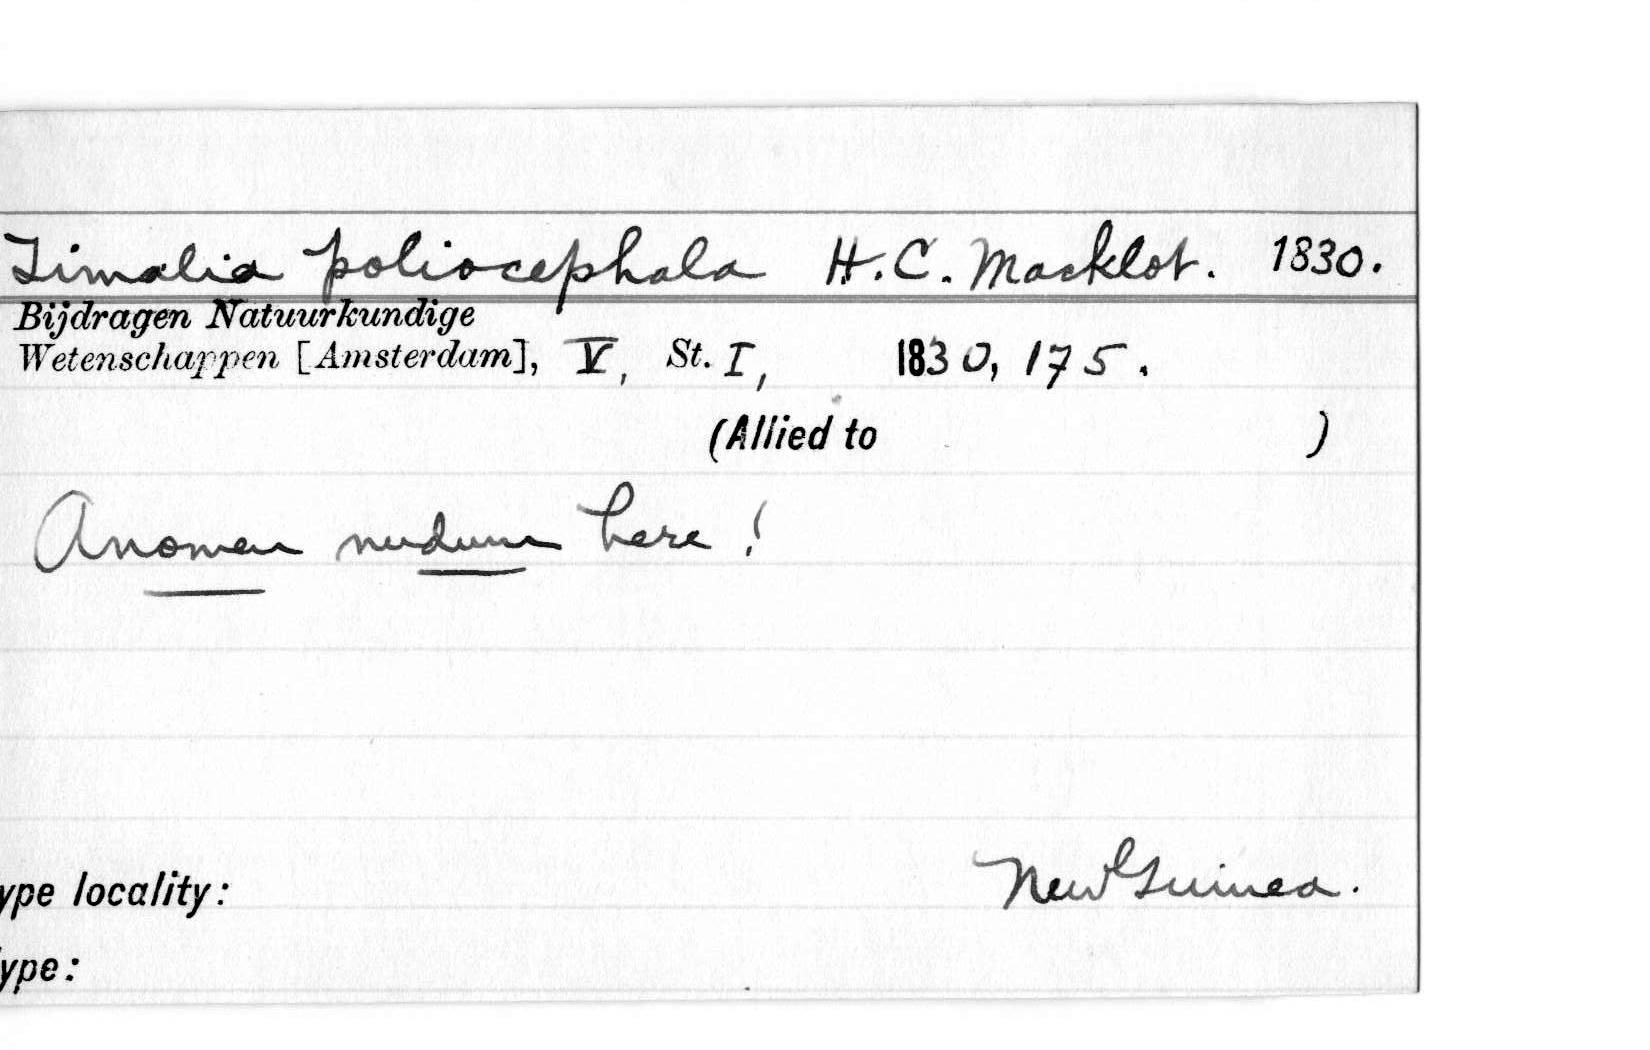 Timalia poliocephala H. C. Macklot. 1830.
Bijdragen Natuurkundige
Wetenschappen [Amsterdam], V, St. I, 1830, 175.
(Allied to )
A nomen nudum here!
ype locality: New Guinea.
ype: